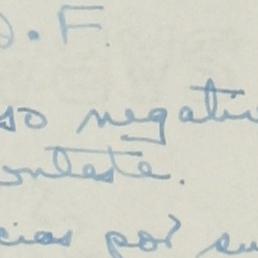 D.F.
so negati
contesta.
cias por su